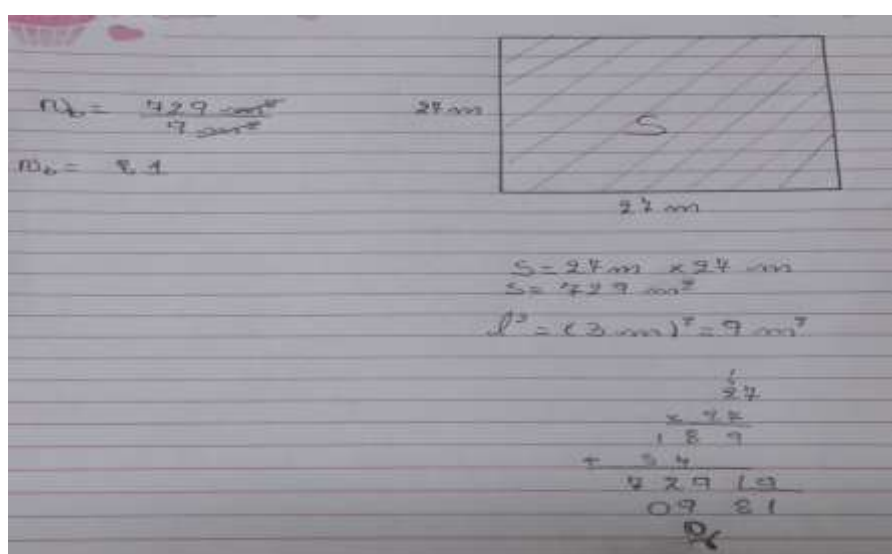 n_b = 729 m² / 9 m²
n_b = 81
27 m
S
27 m
S = 27 m x 27 m
S = 729 m²
l² = (3 m)² = 9 m²
27
x 27
189
+ 54
729 |9
09 81
0